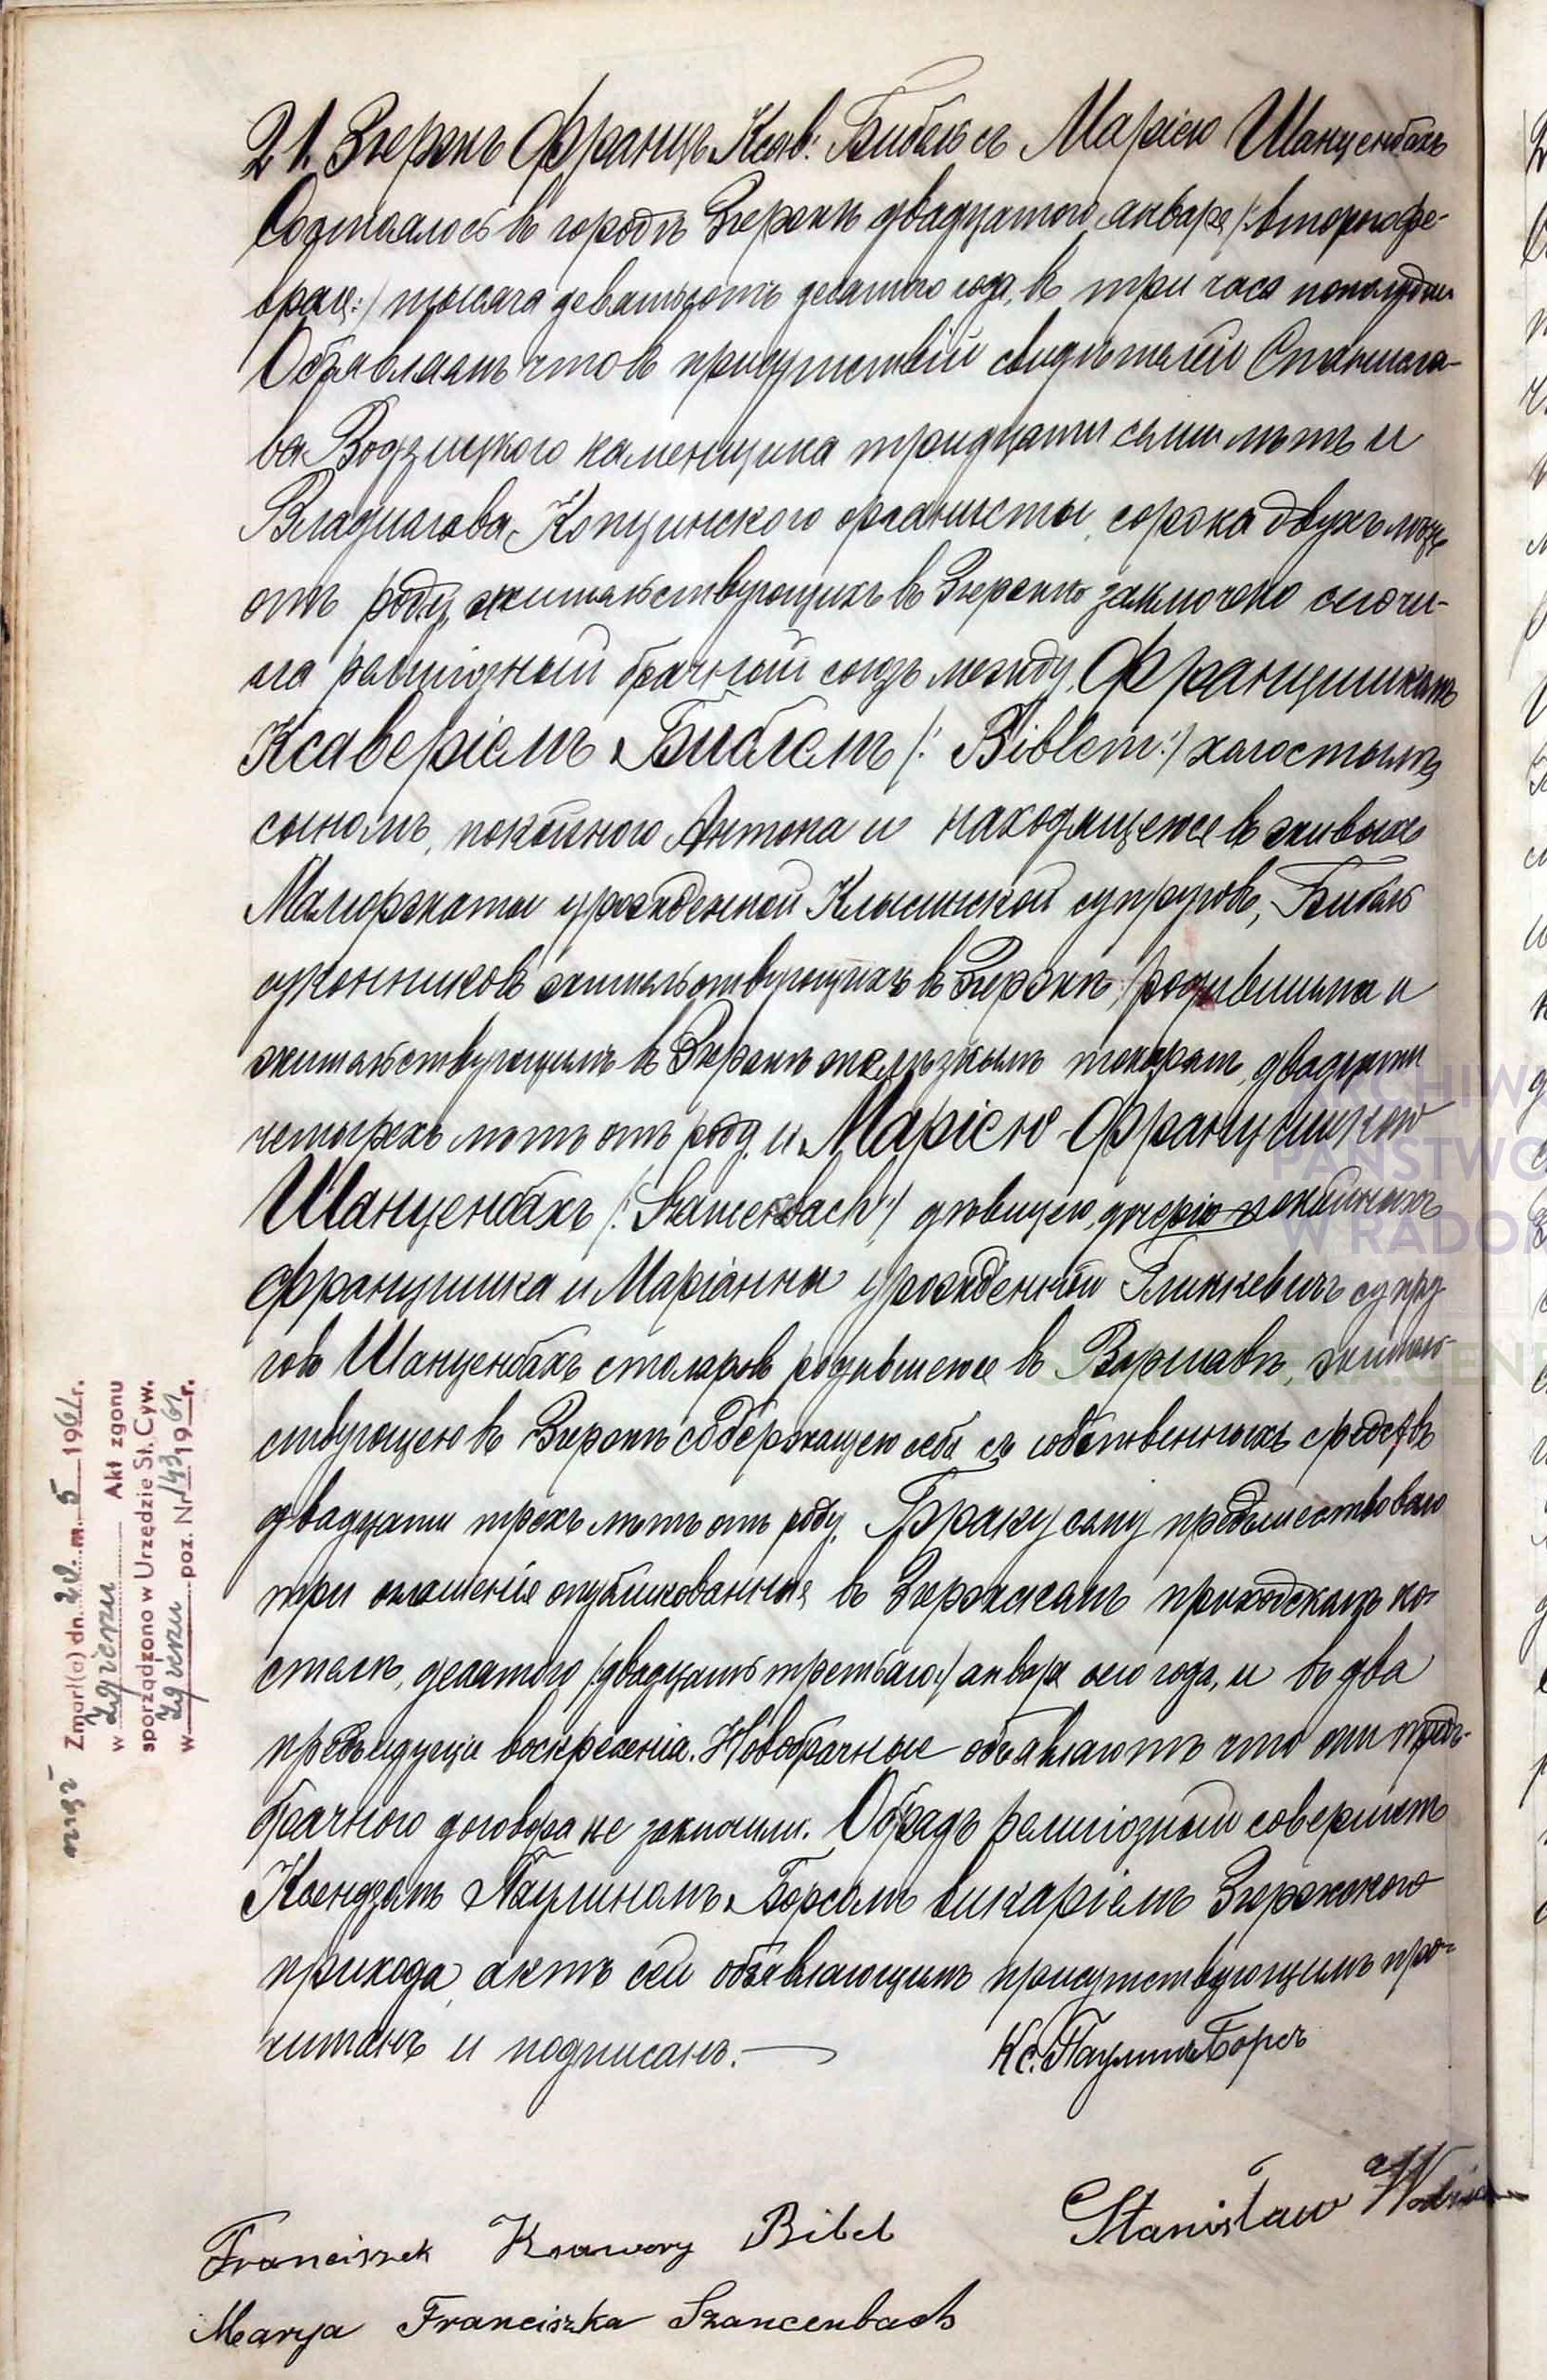 21. Згержъ Францъ Ксав: Бибель съ Маріею Шанценбахъ
Состоялось въ городѣ Згержѣ двадцатаго января /:второго фе-
враля:/ тысяча девятьсотъ десятаго года, въ три часа пополудни
Объявляемъ что въ присутствіи свидѣтелей Станисла-
ва Водзицкого каменщика тридцати семи лѣтъ и
Владислава Копцинского органисты, сорока двухъ лѣтъ
отъ роду, жительствующихъ въ Згержѣ заключено сего чи-
сла религіозный брачный союзъ между Францишкомъ
Ксаверіемъ Библемъ /: Biblem :/ холостымъ,
сыномъ, покойного Антона и находящейся въ живыхъ
Малгоржаты урожденной Клысинской супруговъ, Бибель
суконниковъ жительствующихъ въ Згержѣ, родившимся и
жительствующимъ въ Згержѣ желѣзнымъ токаремъ, двадцати
четырехъ лѣтъ отъ роду и Маріею Францишкою
Шанценбахъ /: Szancenbach :/ дѣвицею, дочерію покойныхъ
Францишка и Маріанны урожденной Глинкевичъ супру-
говъ Шанценбахъ столяровъ родившеюся въ Варшавѣ, житель-
ствующею въ Згержѣ содержащею себя съ собственныхъ средствъ
двадцати трехъ лѣтъ отъ роду. Браку сему предшествовало
три оглашенія опубликованныя въ Згержскомъ приходскомъ ко-
стелѣ, десятого /двадцать третьяго:/ января сего года, и въ два
предъидущія воскресенія. Новобрачные объявляютъ что они предъ-
брачного договора не заключили. Обрядъ религіозный совершенъ
Ксендзомъ Паулиномъ Борсомъ викаріемъ Згержского
прихода, актъ сей объявляющимъ присутствующимъ про-
читанъ и подписанъ.
Кс. Паулинъ Борсъ
Stanisław
Franciszek Ksawery Bibel
Marya Franciszka Szancenbach
mąż
Zmarł(a) dn. 20 m. 5 1961 r.
w Zgierzu Akt zgonu
sporządzono w Urzędzie St. Cyw.
w Zgierzu poz. Nr 143 1961 r.
ARCHIWU
PAŃSTWO
W RADOM